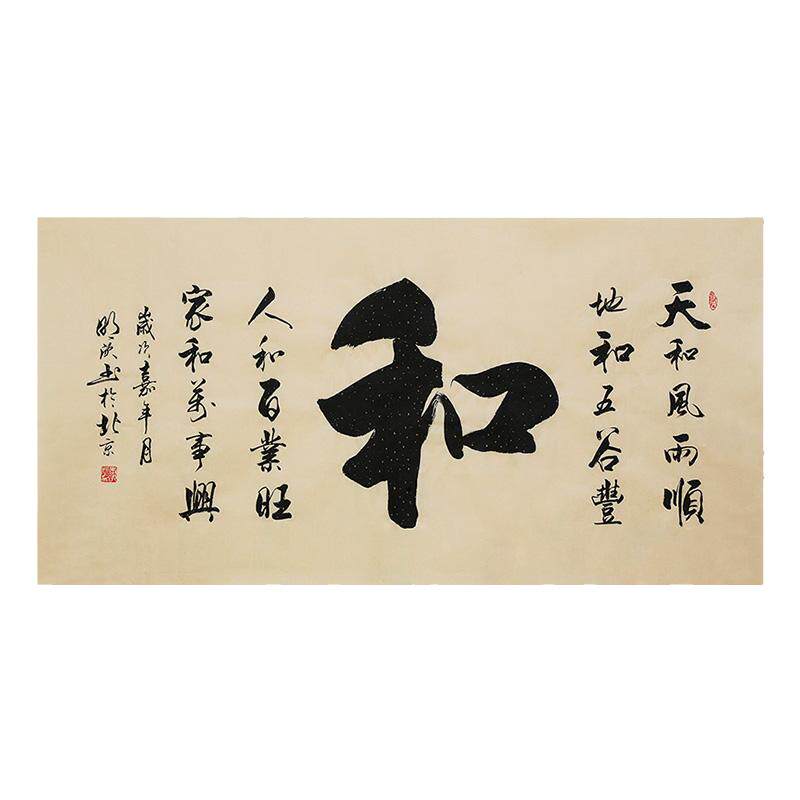 天和風雨順
地和五谷豐
和
人和百業旺
家和萬事興
歲次嘉年月
明庆书於北京